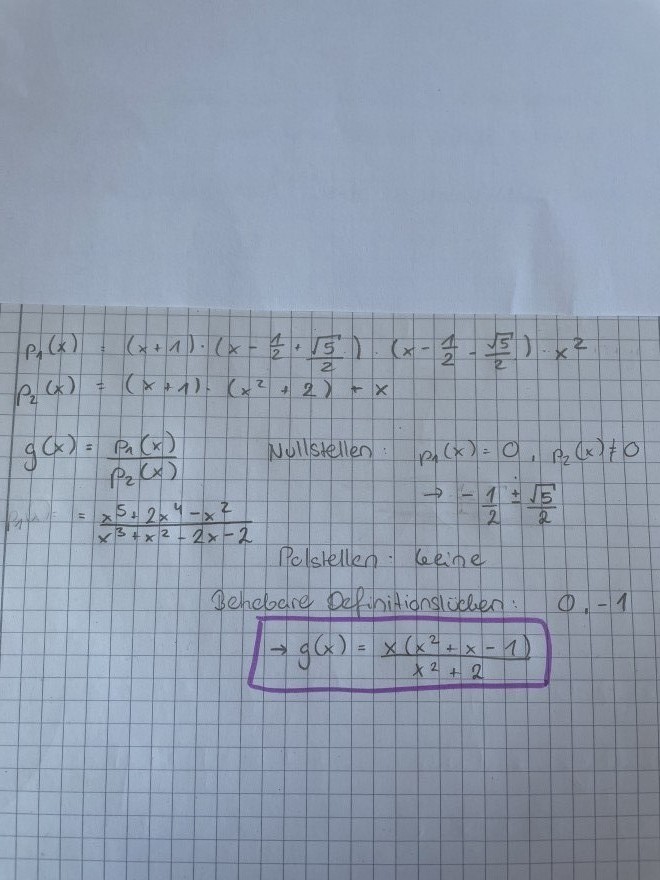 p₁(x) = (x+1)·(x - 1/2 + √5/2)·(x - 1/2 - √5/2)·x²
p₂(x) = (x+1)·(x² + 2) · x
g(x) = p₁(x)/p₂(x) Nullstellen: p₁(x) = 0, p₂(x) ≠ 0
→ -1/2 ± √5/2
= (x⁵ + 2x⁴ - x²)/(x³ + x² - 2x - 2)
Polstellen: keine
Behebbare Definitionslücken: 0, -1
→ g(x) = x(x² + x - 1)/(x² + 2)